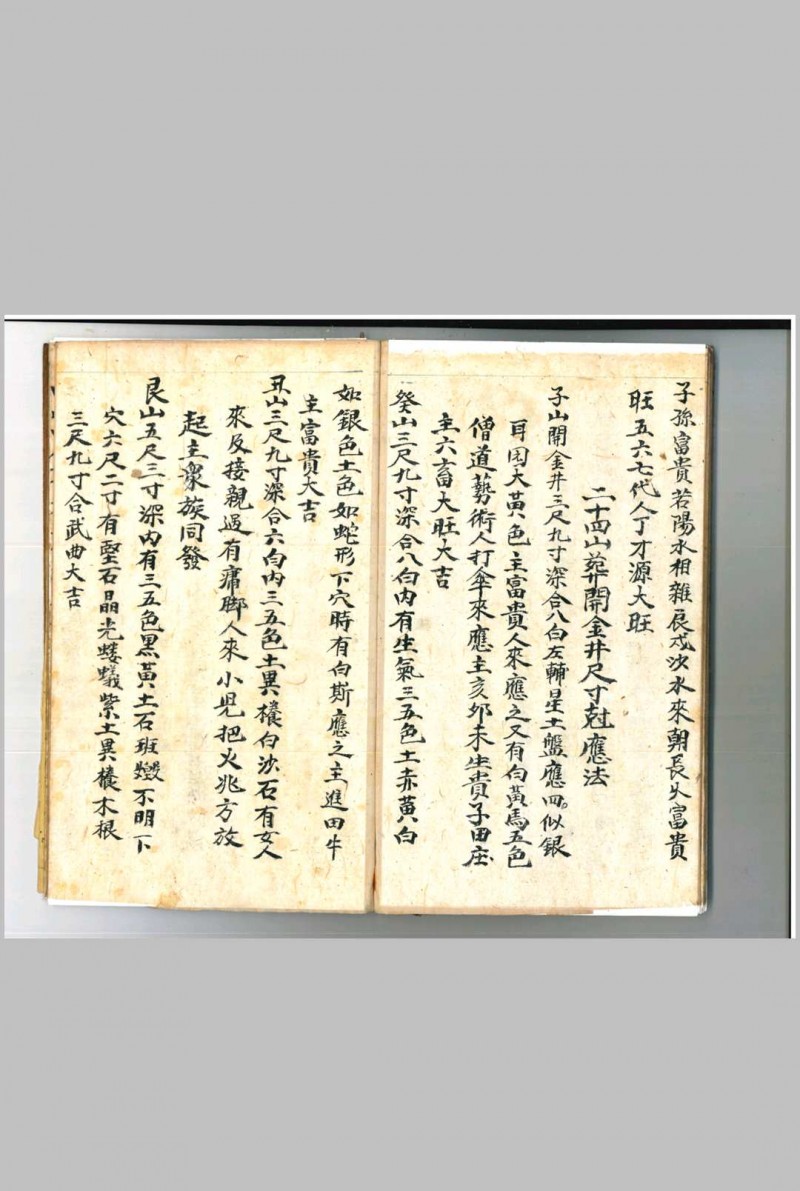 子孫富貴若陽水相雜辰戍沙水來朝長久富貴
旺五六七代人丁才源大旺
二十四山葬開金井尺寸尅應法
子山開金井三尺九寸深合八白左輔星土盤應四似銀
耳固大黃色主富貴人來應之又有白黃馬五色
僧道藝術人打傘來應主亥卯未生貴子田庄
主六畜大旺大吉
癸山三尺九寸深合八白內有生氣三五色土赤黃白
如銀色土色如蛇形下穴時有白斯應之主進田牛
主富貴大吉
丑山三尺九寸深合六白內三五色土異樣白沙石有女人
來及接親過有痛脚人來小児把火兆方放
起主衆族同發
艮山五尺三寸深內有三五色黑黃土石班不明下
穴六尺二寸有堅石晶光螻蟻紫土異樣木根
三尺九寸合武曲大吉